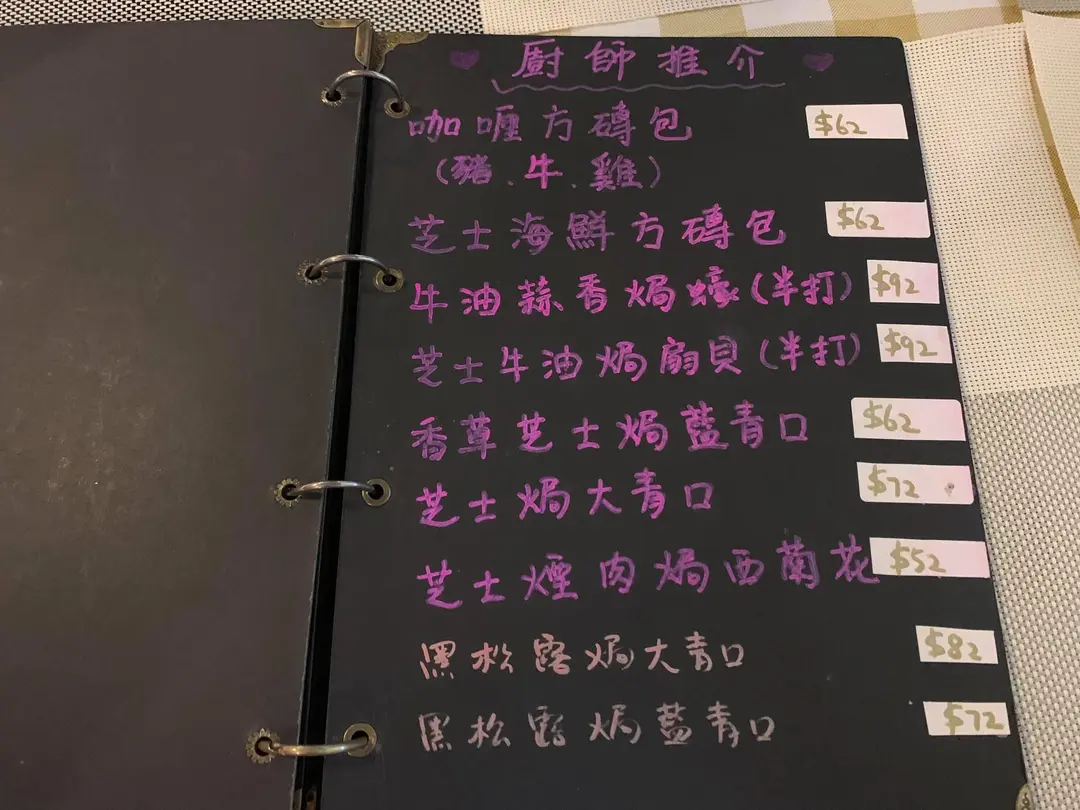 廚師推介
咖喱方磚包 $62
(豬、牛、雞)
芝士海鮮方磚包 $62
牛油蒜香焗蠔(半打) $92
芝士牛油焗扇貝(半打) $92
香草芝士焗藍青口 $62
芝士焗大青口 $72
芝士煙肉焗西蘭花 $52
黑松露焗大青口 $82
黑松露焗藍青口 $72